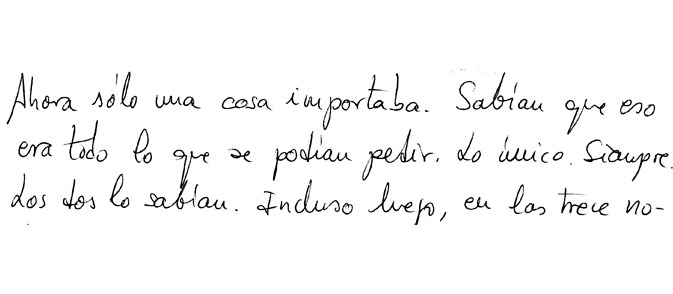 Ahora sólo una cosa importaba. Sabían que eso
era todo lo que se podían pedir. Lo único. Siempre.
Los dos lo sabían. Incluso luego, en las trece no-